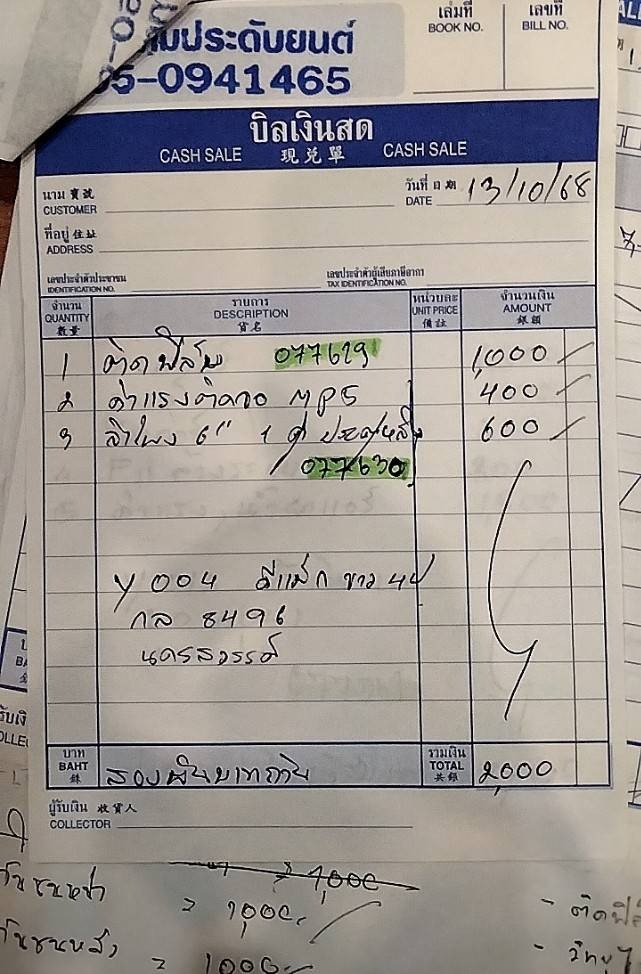 ประดับยนต์
5-0941465
เล่มที่ เลขที่
BOOK NO. BILL NO.
บิลเงินสด
CASH SALE 現兌單 CASH SALE
นาม 寶號
CUSTOMER
วันที่ 日期
DATE 13/10/68
ที่อยู่ 住址
ADDRESS
เลขประจำตัวประชาชน เลขประจำตัวผู้เสียภาษีอากร
IDENTIFICATION NO. TAX IDENTIFICATION NO.
จำนวน รายการ หน่วยละ จำนวนเงิน
QUANTITY DESCRIPTION UNIT PRICE AMOUNT
數量 貨名 備註 銀額
1 ติดฟิล์ม 077629 1,000
2 ค่าแรงติดจอ MP5 400
3 ลำโพง 6" 1 คู่ ประตูหลัง 600
077630
Y 004 ดีแม็ก ขาว 4ป
กล 8496
นครสวรรค์
บาท รวมเงิน
BAHT สองพันบาทถ้วน TOTAL 2,000
銖 共銀
ผู้รับเงิน 收貨人
COLLECTOR
1,000
กันชนหน้า = 1,000.
กันชนหลัง = 1000
- ติดฟิ
- วิทยุ